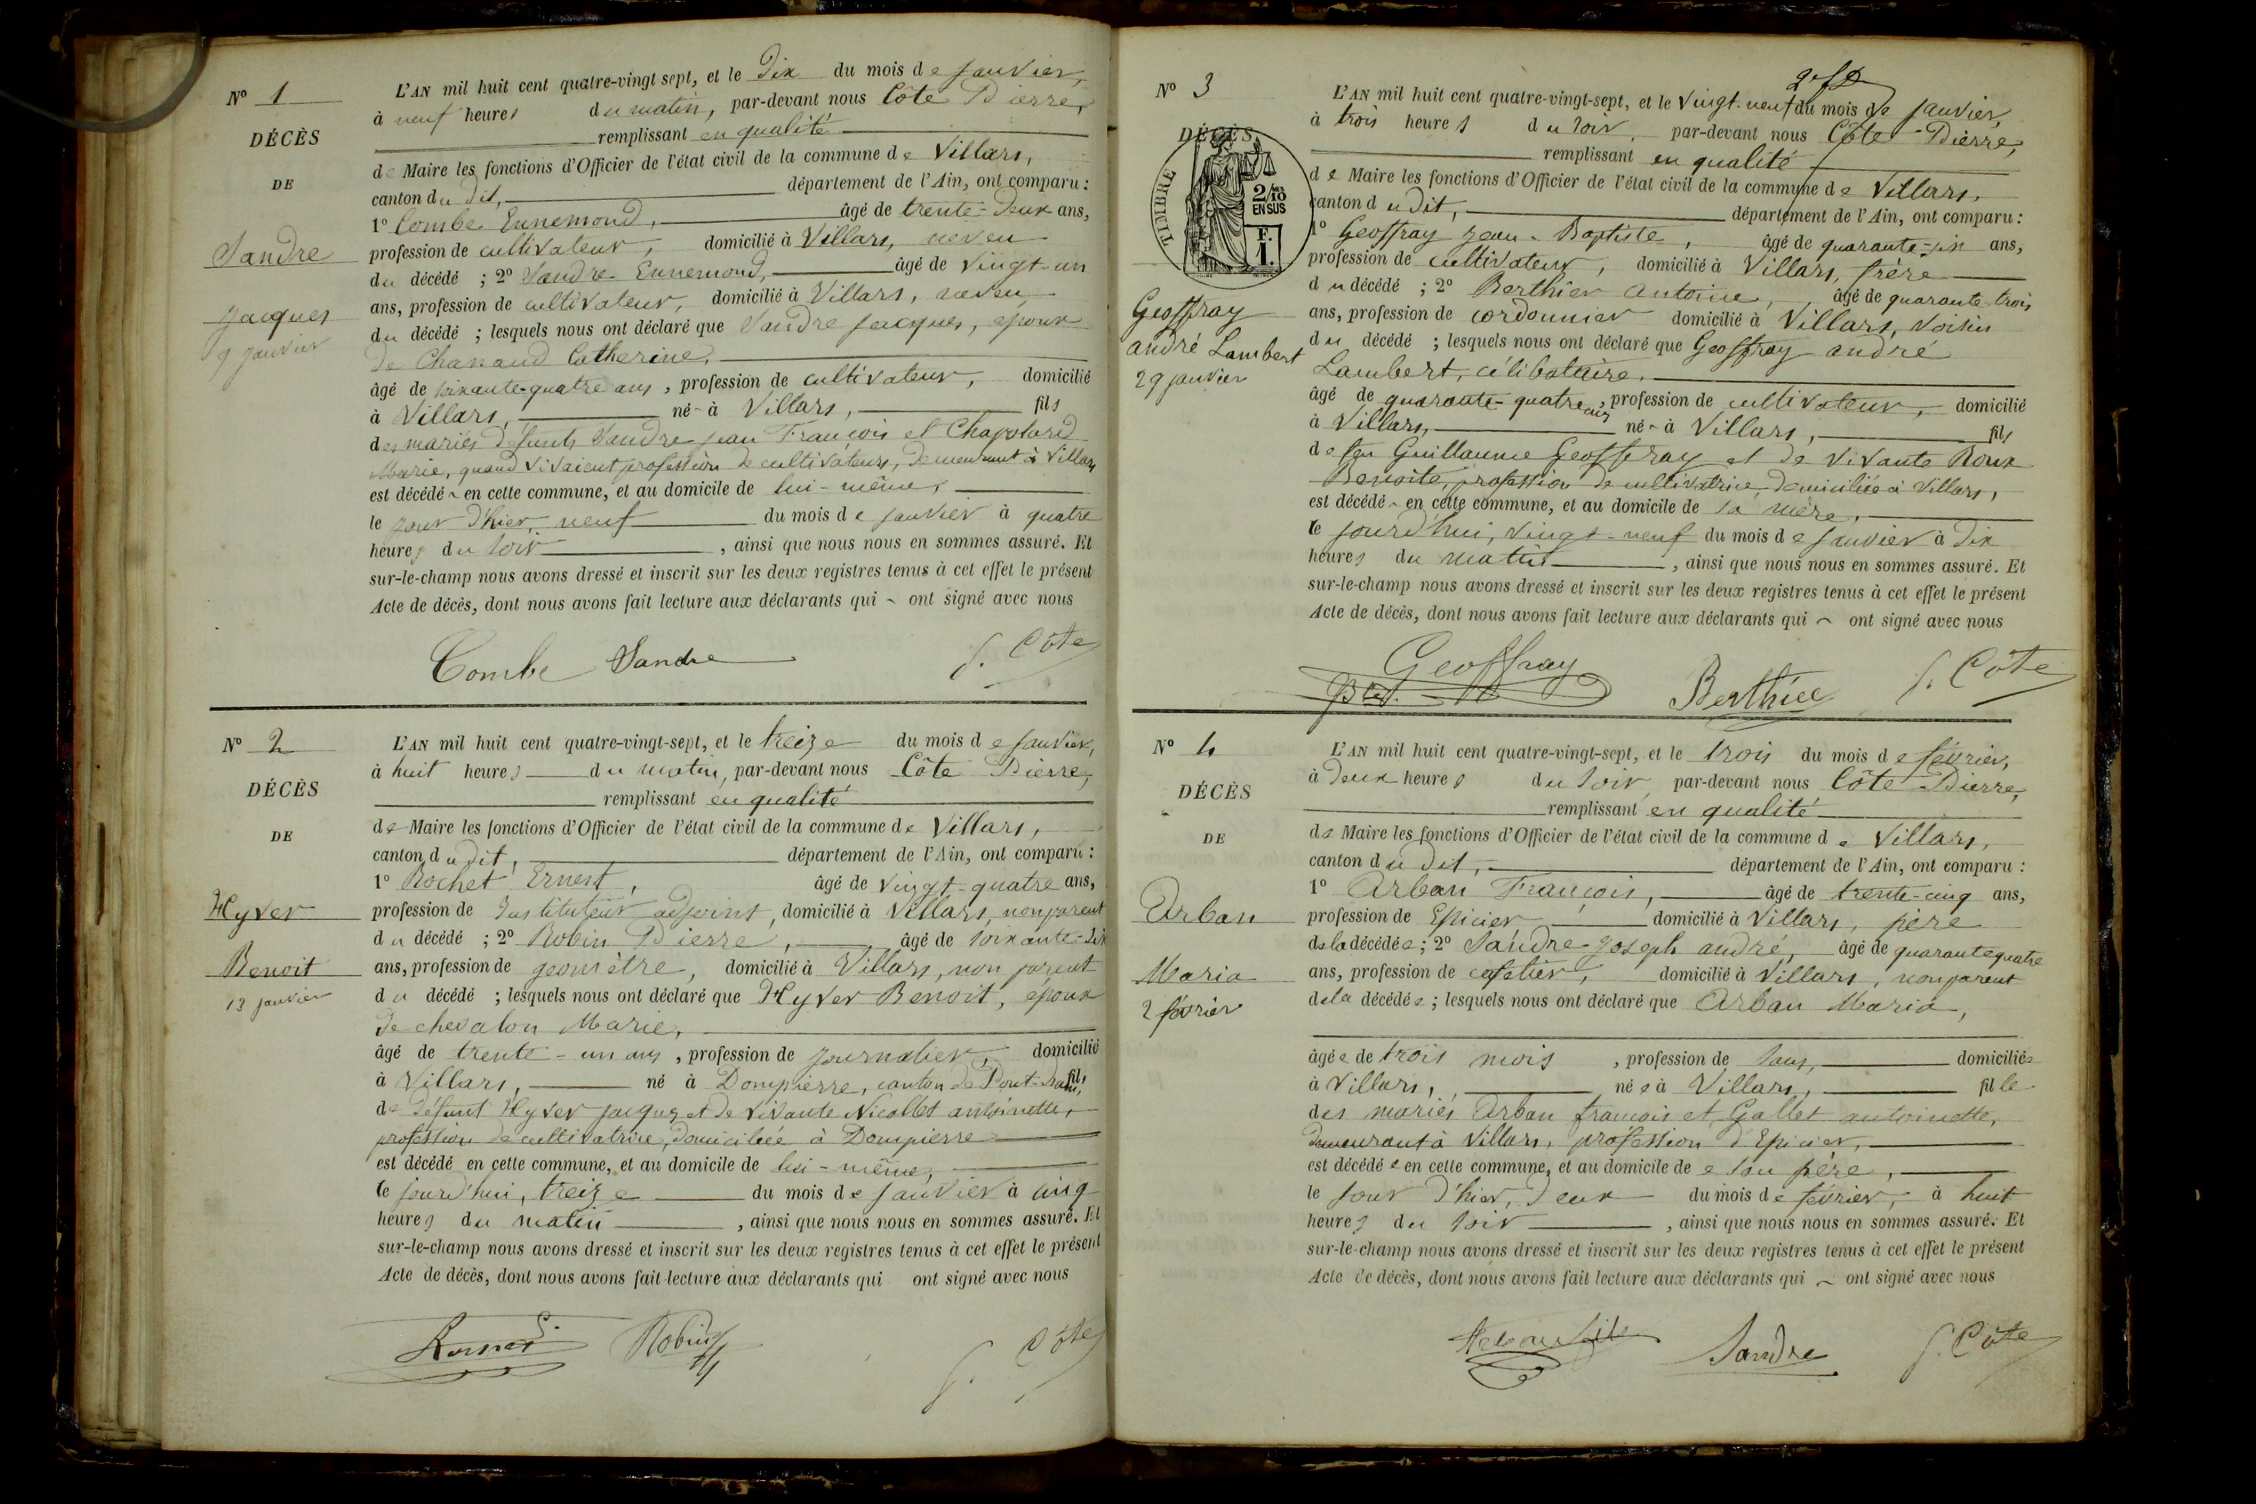 N° 1
DÉCÈS
DE
Sandre
Jacques
9 janvier
L'AN mil huit cent quatre-vingt sept, et le Dix du mois de janvier,
à neuf heures du matin, par-devant nous Côte Pierre,
remplissant en qualité
de Maire les fonctions d'Officier de l'état civil de la commune de Villars,
canton du dit, département de l'Ain, ont comparu :
1° Combe Ennemond, âgé de trente-deux ans,
profession de cultivateur, domicilié à Villars, neveu
du décédé ; 2° Sandre Ennemond, âgé de vingt-un
ans, profession de cultivateur, domicilié à Villars, neveu
du décédé ; lesquels nous ont déclaré que Sandre Jacques, époux
de Chanaud Catherine,
âgé de soixante-quatre ans, profession de cultivateur, domicilié
à Villars, né à Villars, fils
des mariés défunts Sandre Jean François et Chapolard
Marie, quand vivaient profession de cultivateurs, demeurant à Villars
est décédé en cette commune, et au domicile de lui-même,
le jour d'hier, neuf du mois de janvier à quatre
heures du soir, ainsi que nous nous en sommes assuré. Et
sur-le-champ nous avons dressé et inscrit sur les deux registres tenus à cet effet le présent
Acte de décès, dont nous avons fait lecture aux déclarants qui ont signé avec nous
Combe Sandre P. Côte
N° 2
DÉCÈS
DE
Hyver
Benoit
13 janvier
L'AN mil huit cent quatre-vingt-sept, et le treize du mois de janvier,
à huit heures du matin, par-devant nous Côte Pierre,
remplissant en qualité
de Maire les fonctions d'Officier de l'état civil de la commune de Villars,
canton du dit, département de l'Ain, ont comparu :
1° Rochet Ernest, âgé de vingt-quatre ans,
profession de Instituteur adjoint, domicilié à Villars, non parent
du décédé ; 2° Robin Pierre, âgé de soixante-dix
ans, profession de géomètre, domicilié à Villars, non parent
du décédé ; lesquels nous ont déclaré que Hyver Benoit, époux
de chevalon Marie,
âgé de trente-un ans, profession de journalier, domicilié
à Villars, né à Dompierre, canton de Pont-d'ain, fils
de défunt Hyver jacques et de vivante Nicollet antoinette,
profession de cultivatrice, domiciliée à Dompierre
est décédé en cette commune, et au domicile de lui-même,
le jourd'hui, treize du mois de janvier à cinq
heures du matin, ainsi que nous nous en sommes assuré. Et
sur-le-champ nous avons dressé et inscrit sur les deux registres tenus à cet effet le présent
Acte de décès, dont nous avons fait lecture aux déclarants qui ont signé avec nous
Robin P. Côte
N° 3
DÉCÈS
TIMBRE
2/10
EN SUS
F.
1.
Geoffray
andré Lambert
29 janvier
L'AN mil huit cent quatre-vingt-sept, et le vingt-neuf du mois de janvier,
à trois heures du soir, par-devant nous Côte Pierre,
remplissant en qualité
de Maire les fonctions d'Officier de l'état civil de la commune de Villars,
canton du dit, département de l'Ain, ont comparu :
1° Geoffray Jean-Baptiste, âgé de quarante-six ans,
profession de cultivateur, domicilié à Villars, frère
du décédé ; 2° Berthier antoine, âgé de quarante-trois
ans, profession de cordonnier domicilié à Villars, voisin
du décédé ; lesquels nous ont déclaré que Geoffray andré
Lambert, célibataire,
âgé de quarante-quatre ans, profession de cultivateur, domicilié
à Villars, né à Villars, fils
de feu Guillaume Geoffray et de vivante Roux
Benoite, profession de cultivatrice, domiciliée à Villars,
est décédé en cette commune, et au domicile de sa mère,
le jourd'hui, vingt-neuf du mois de janvier à dix
heures du matin, ainsi que nous nous en sommes assuré. Et
sur-le-champ nous avons dressé et inscrit sur les deux registres tenus à cet effet le présent
Acte de décès, dont nous avons fait lecture aux déclarants qui ont signé avec nous
Geoffray Berthier P. Côte
N° 4
DÉCÈS
DE
Arban
Maria
2 février
L'AN mil huit cent quatre-vingt-sept, et le trois du mois de février,
à deux heures du soir, par-devant nous Côte Pierre,
remplissant en qualité
de Maire les fonctions d'Officier de l'état civil de la commune de Villars,
canton du dit, département de l'Ain, ont comparu :
1° Arban François, âgé de trente-cinq ans,
profession de Epicier domicilié à Villars, père
de la décédée ; 2° Sandre Joseph andré, âgé de quarante quatre
ans, profession de cafetier, domicilié à Villars, non parent
de la décédée ; lesquels nous ont déclaré que Arban Maria,
âgée de trois mois, profession de sans, domiciliée
à Villars, née à Villars, fille
des mariés Arban françois et Gallet antoinette,
demeurant à Villars, profession d'Epicier,
est décédée en cette commune, et au domicile de son père,
le jour d'hier, deux du mois de février, à huit
heures du soir, ainsi que nous nous en sommes assuré. Et
sur-le-champ nous avons dressé et inscrit sur les deux registres tenus à cet effet le présent
Acte de décès, dont nous avons fait lecture aux déclarants qui ont signé avec nous
Sandre P. Côte